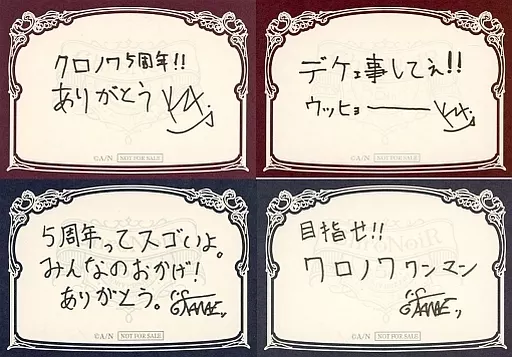 クロノワ5周年!!
ありがとう
©A/N NOT FOR SALE
デケェ事してぇ!!
ウッヒョ―――
©A/N NOT FOR SALE
5周年ってスゴいよ。
みんなのおかげ!
ありがとう。
©A/N NOT FOR SALE
目指せ!!
クロノワワンマン
©A/N NOT FOR SALE